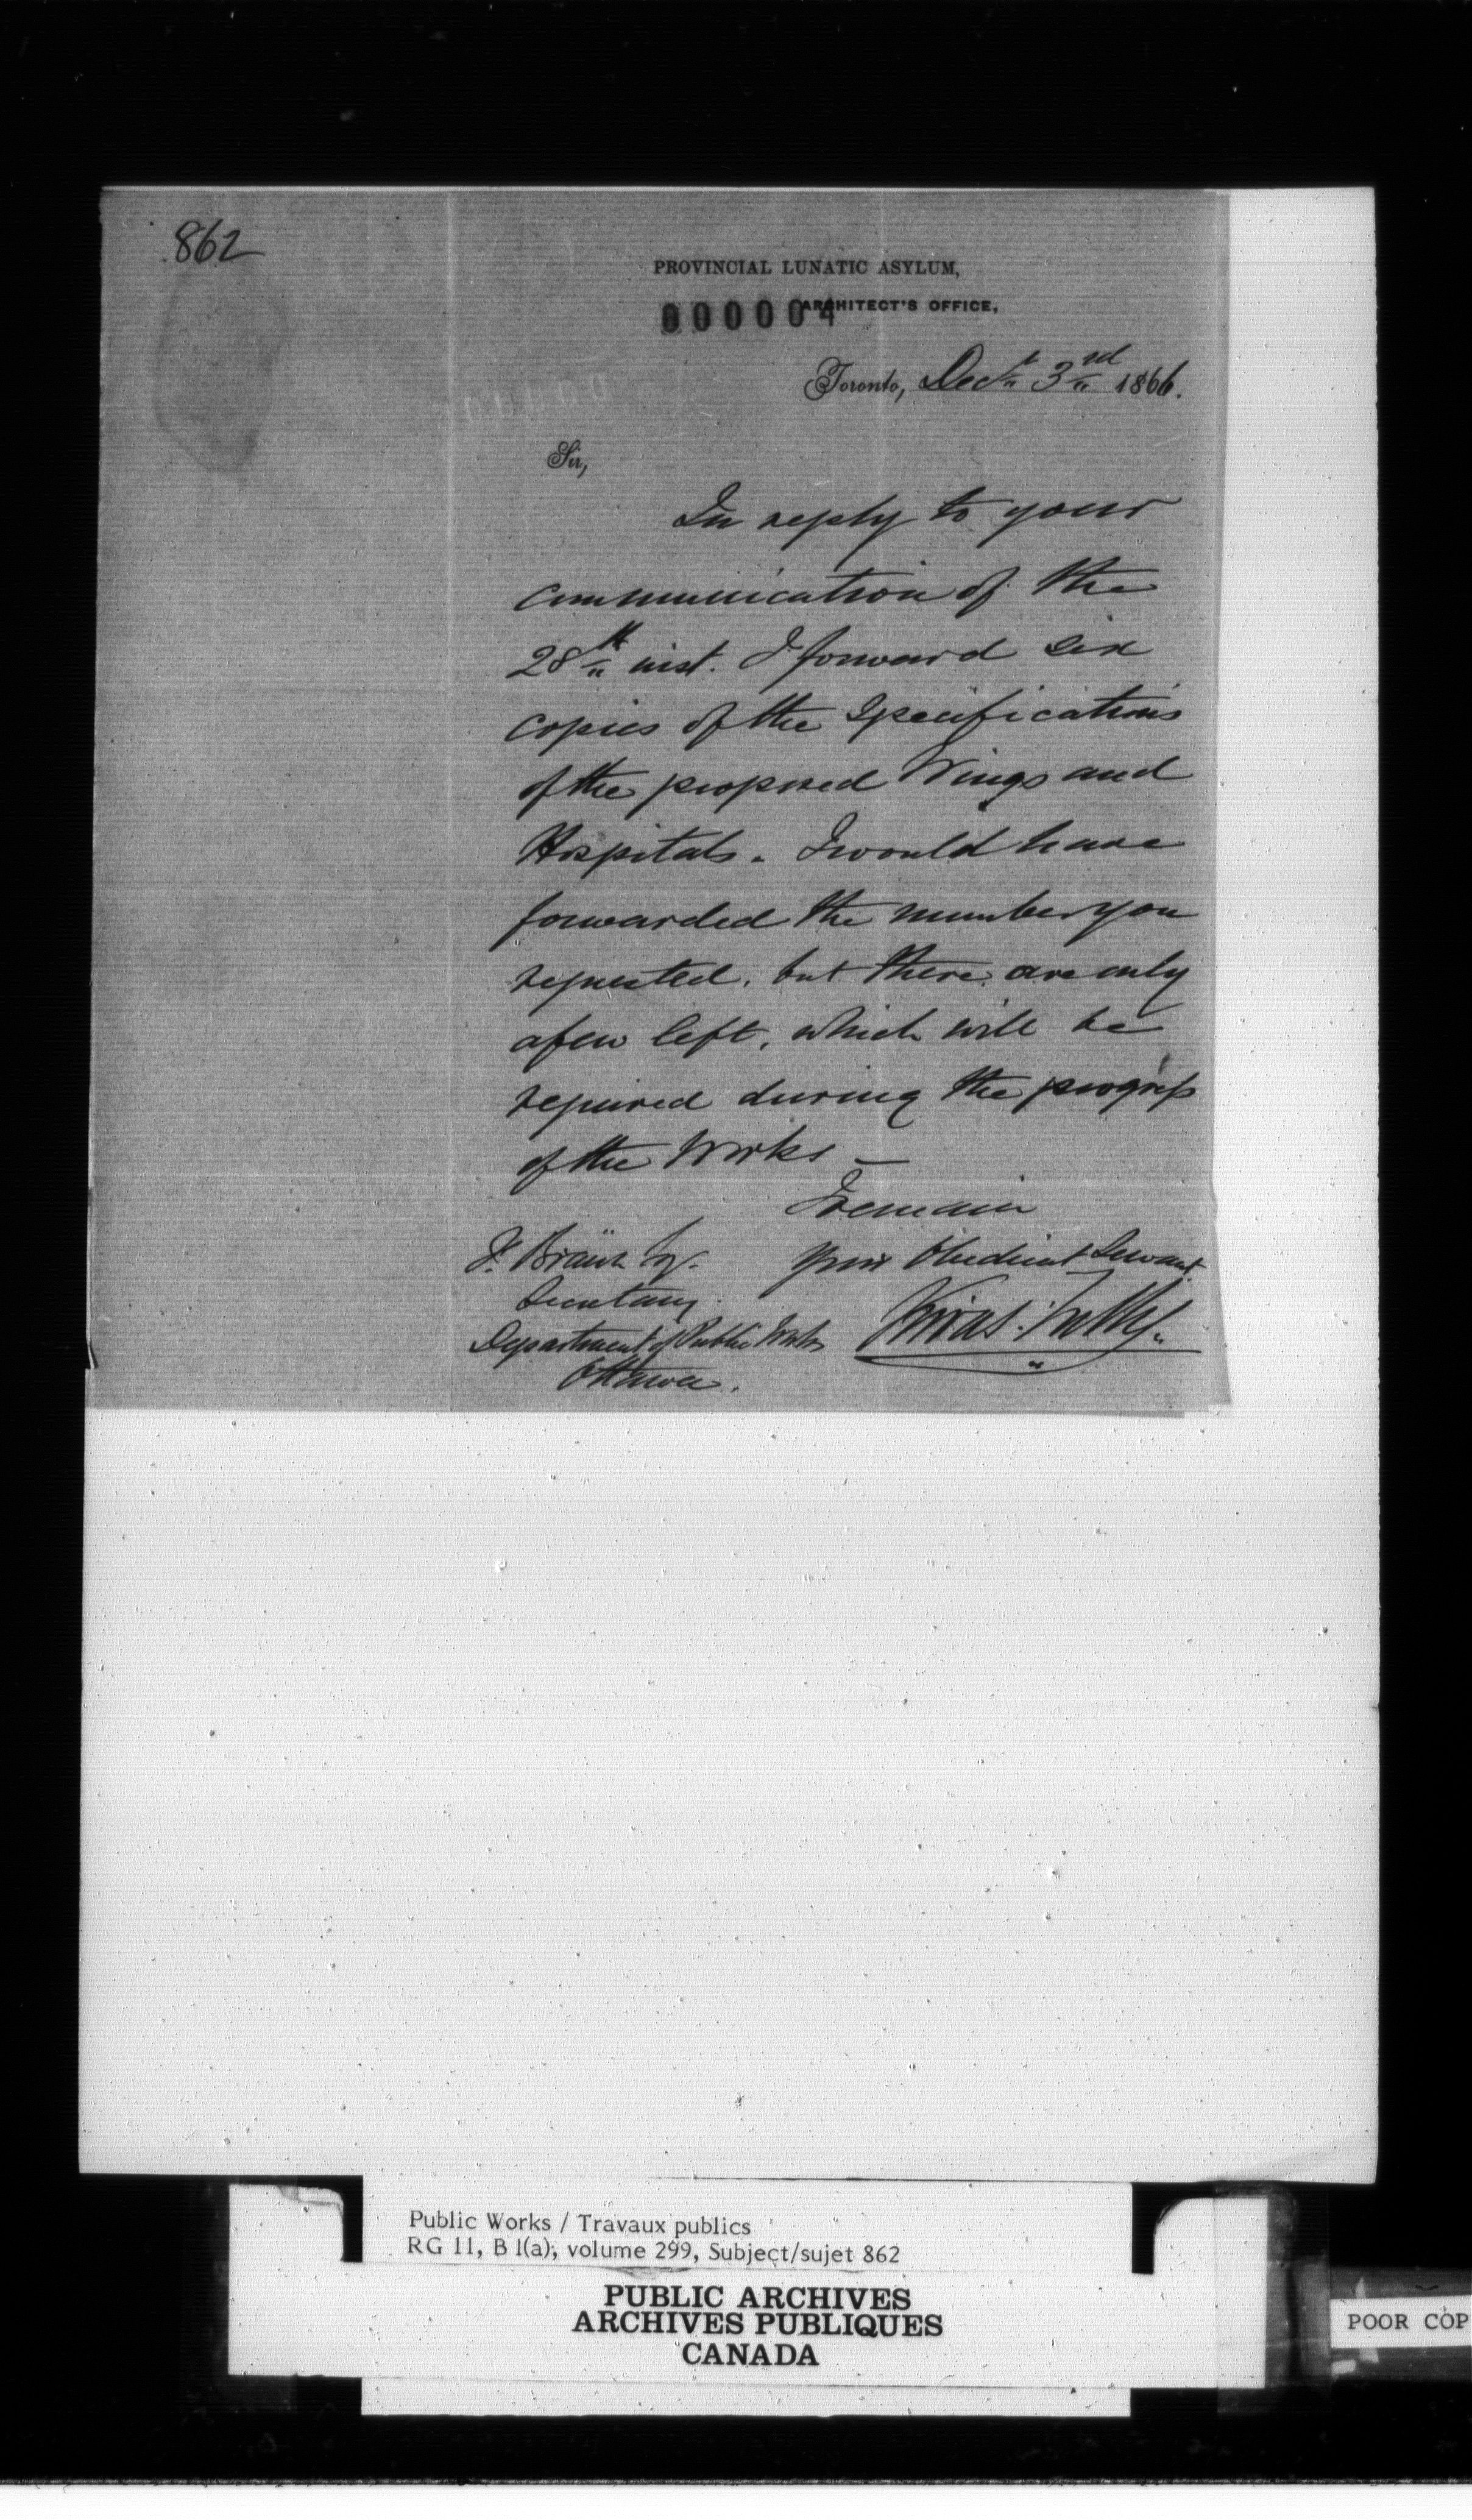 862
PROVINCIAL LUNATIC ASYLUM,
000004
ARCHITECT'S OFFICE,
Toronto, Decr 3rd 1866.
Sir,
In reply to your
communication of the
28th inst. I forward six
copies of the Specifications
of the proposed Wings and
Hospitals. I would have
forwarded the number you
requested, but there are only
a few left, which will be
required during the progress
of the Works —
I remain
Your Obedient Servant
F. Braün Esq.
Secretary
Department of Public Works
Ottawa.
Kivas Tully.
Public Works / Travaux publics
RG 11, B 1(a), volume 299, Subject/sujet 862
PUBLIC ARCHIVES
ARCHIVES PUBLIQUES
CANADA
POOR COP